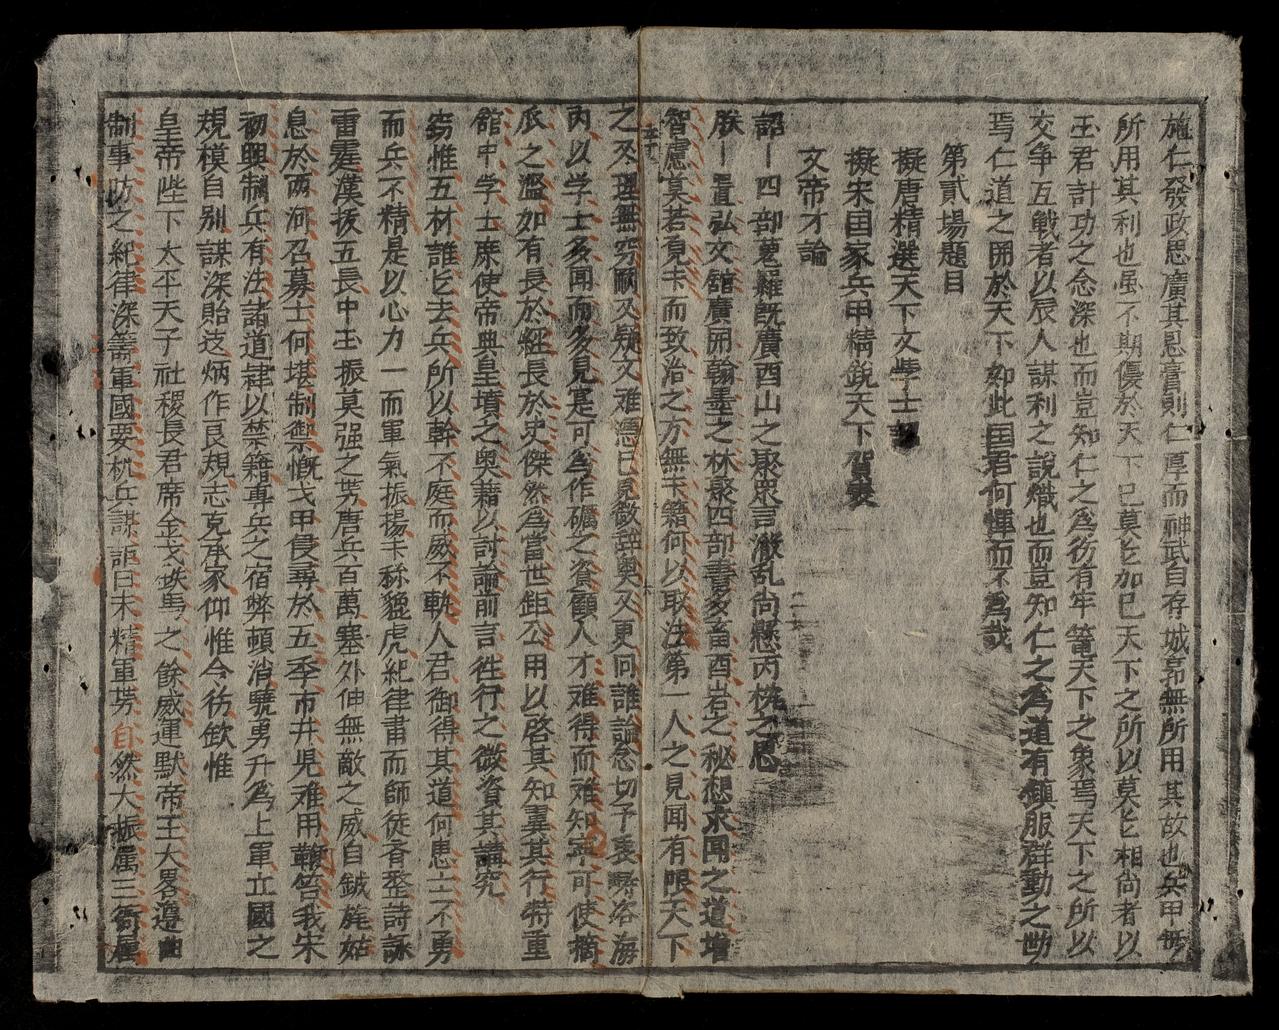 施仁發政恩廣其恩膏則仁厚而神武自存城郭無所用其故也兵甲無
所用其利也虽不期優於天下已莫乞加已天下之所以莫乞相尚者以
王君計功之念深也而豈知仁之為彷有牢篭天下之象焉天下之所以
交争互戰者以辰人謀利之說熾也而豈知仁之為道有鎮服群動之勢
焉仁道之囲於天下如此国君何憚而不為哉
第貳場題目
擬唐精選天下文學士詔
擬宋国家兵甲精銳天下賀表
文帝才論
詔一四部蒐羅既廣酉山之聚眾言淆乱尚懸丙枕之思
朕一置弘文舘廣囲翰墨之林聚四部書多畜酉岩之秘想求囲之道增
智慮莫若有而致治之方無籍何以取法第一人之見闻有限天下
之理無窮又疑又难憑已見微辞奥又更向誰論念切予衷疇咨海
内以学士多闻而多見是可為作礪之資顧人才难得而难知寧可使摘
瓜之濫如有長於經長於史傑然為當世鉅公用以啓其知翼其行特重
舘中学士席使帝典皇墳之奥藉以討論前言徃行之微資其講究
窃惟五材誰乞去兵所以幹不庭而威不軌人君御得其道何患士不勇
而兵不精是以心力一而軍氣振揚称貔虎紀律肅而師徒斉整詩詠
雷霆漢抜五長中王振莫强之势唐兵百萬塞外伸無敵之威自鉞旄姑
息於两河召募士何堪制禦慨戈甲侵尋於五季市井児难用韓笞我宋
初興制兵有法諸道肄以禁籍專兵之宿弊頓消驍勇升為上軍立國之
規模自别謀深貽炳作良規志克承家仰惟今彷欽惟
皇帝陛下太平天子社稷長君席金戈馬之餘威運默帝王大畧遵曲
制事防之紀律深籌軍國要枕兵謀詎曰未精軍势自然大振属三衙属